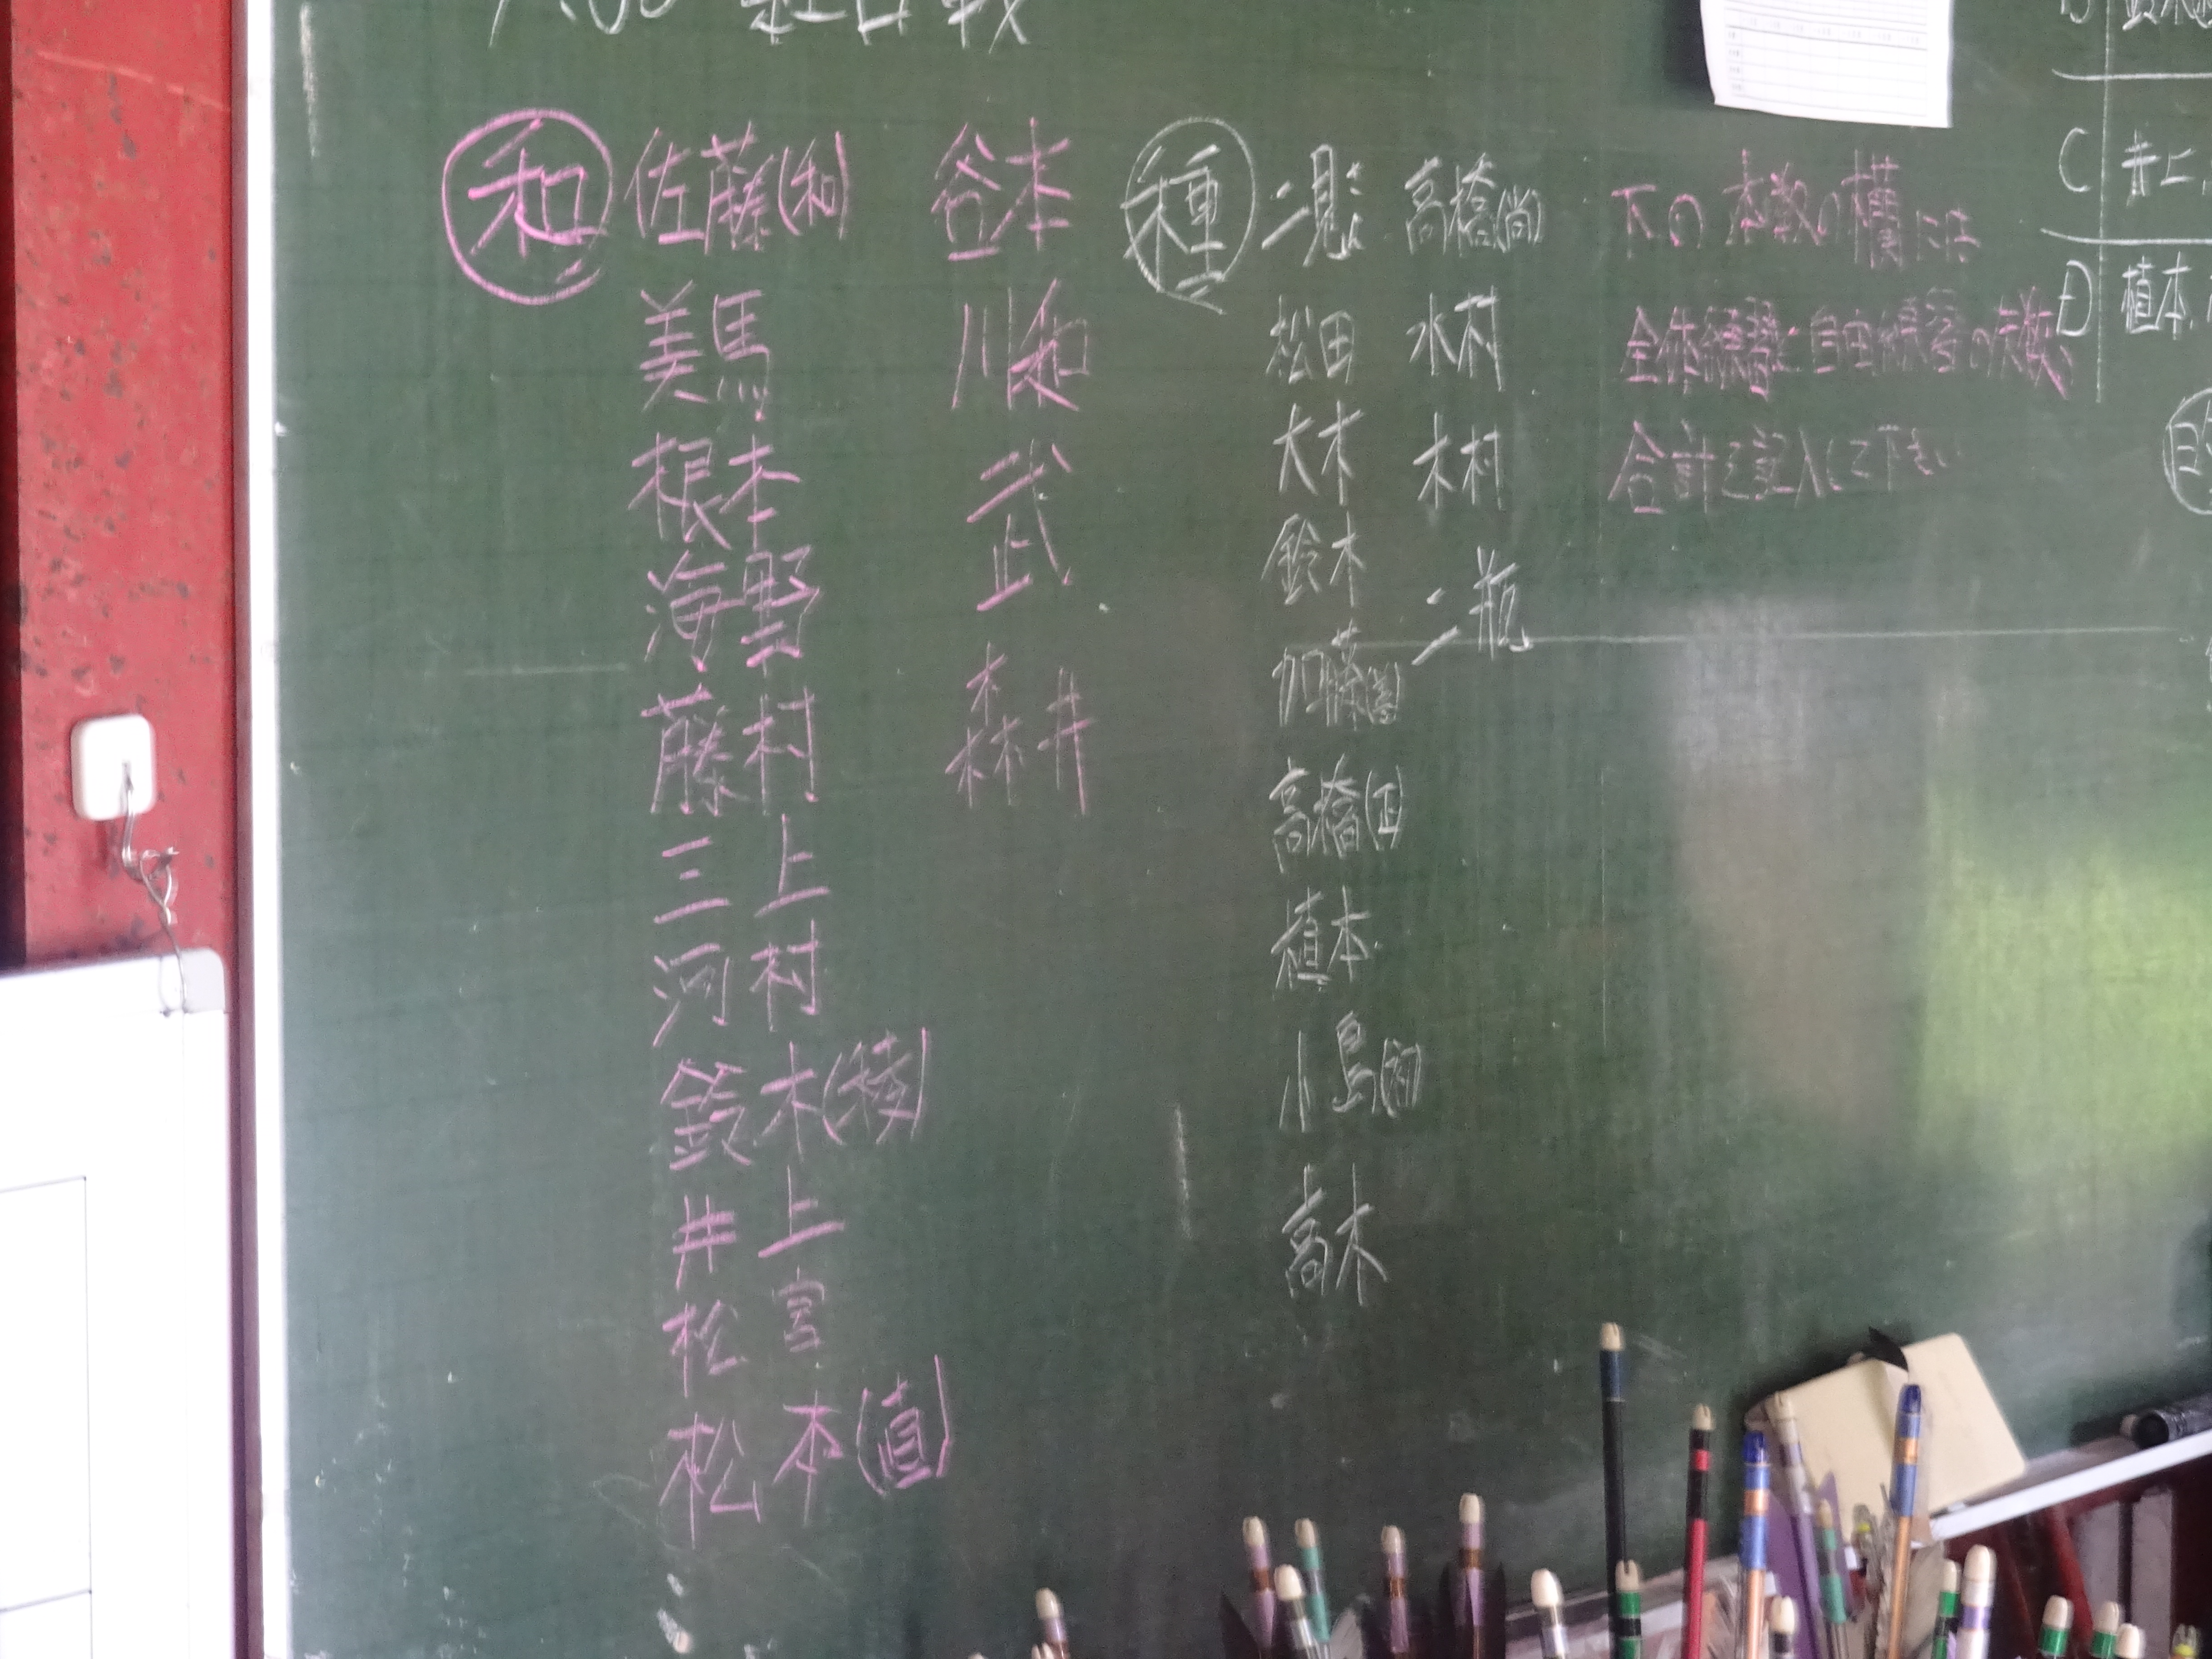 紅白戦
和 佐藤(和) 谷本
美馬 川和
根本 武
海野 森井
藤村
三上
河村
鈴木(稜)
井上
松宮
松本(直)
種 二見 高橋(尚)
松田 水村
大木 木村
鈴木 二瓶
加藤
高橋(正)
植本
小島(初)
高木
下の本数の横には
全体練習と自由練習の矢数
合計を記入して下さい
C 井上
D 植本